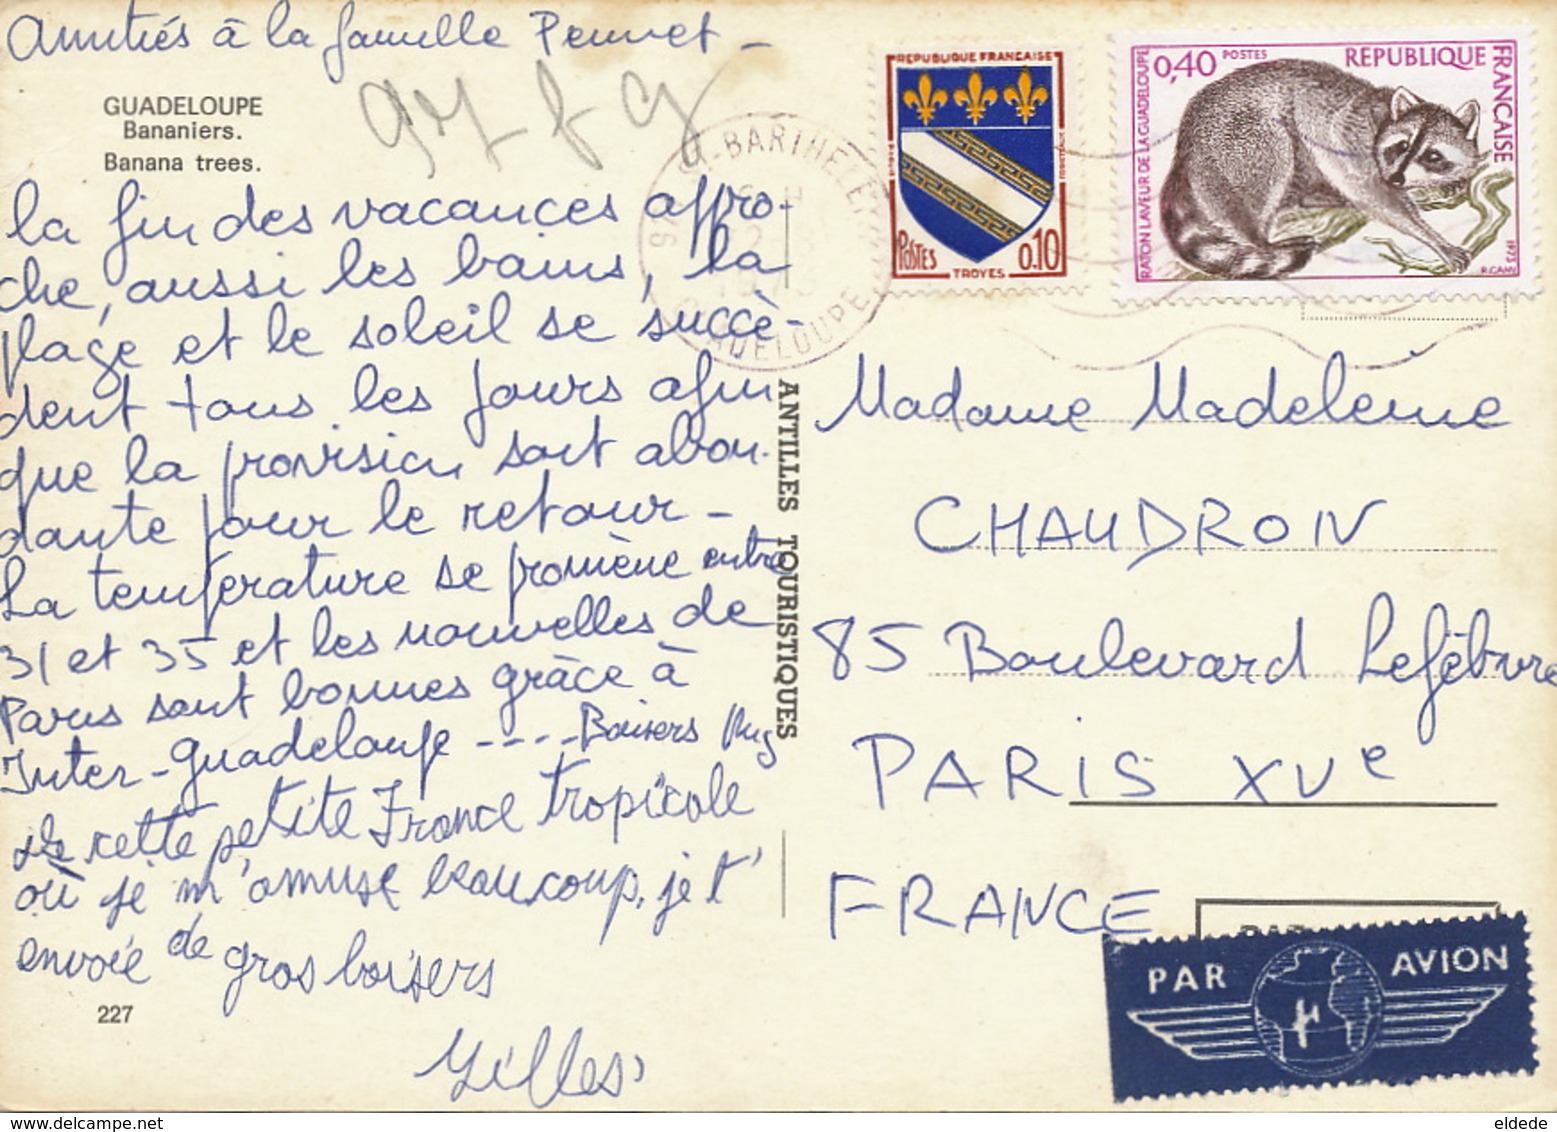 Amitiés à la famille Penvet -
GUADELOUPE
Bananiers.
Banana trees.
la fin des vacances appro-
che, aussi les bains, la
plage et le soleil se succè-
dent tous les jours afin
que la provision soit abon-
dante pour le retour -
La température se promène entre
31 et 35 et les nouvelles de
Paris sont bonnes grâce à
Inter-Guadeloupe ---- Baisers
de cette petite France tropicale
où je m'amuse beaucoup, je t'
envoie de gros baisers
Gilles
227
ANTILLES TOURISTIQUES
ST-BARTHELEMY
GUADELOUPE
REPUBLIQUE FRANÇAISE
POSTES
0,10
TROYES
0,40 POSTES
REPUBLIQUE FRANÇAISE
RATON LAVEUR DE LA GUADELOUPE
1973
P. GANDON
Madame Madeleine
CHAUDRON
85 Boulevard Lefèbvre
PARIS XVe
FRANCE
PAR AVION
eldede